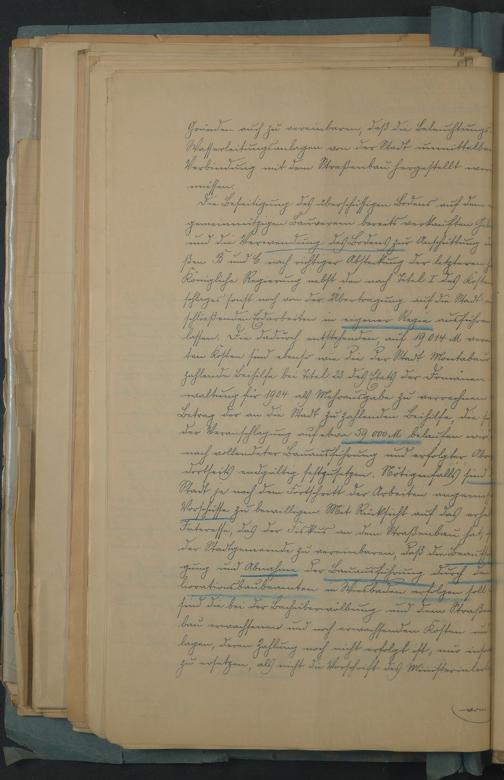 Gründen auch zu vereinbaren, daß die Beleuchtungs
Wasserleitungsanlagen von der Stadt unmittelbar
Verbindung mit dem Straßenbau hergestellt wer
müssen.
Die Beseitigung des überschüssigen Bodens auf dem
gemeinnützigen Bauverein bereits verkauften
und die Verwendung des Bodens zur Anschüttung
ßen B und C nach richtiger Absteckung der letzteren
Königliche Regierung nebst den nach Titel I des Kosten
schlages sonst noch vor der Übertragung auf die Stadt
schließenden Erdarbeiten in eigener Regie ausführen
lassen. Die dadurch entstehenden, auf 19 014 M veran
ten Kosten sind ebenso wie die der Stadt Montabaur
zahlende Beihilfe bei Titel 23 des Etats der Domänen
waltung für 1904 als Mehrausgabe zu verrechnen
Betrag der an die Stadt zu zahlenden Beihilfe, die
der Veranschlagung auf etwa 59 000 M belaufen wir
nach vollendeter Bauausführung und erfolgter Abn
dortseits endgültig festzusetzen. Nötigenfalls sind
Stadt je nach dem Fortschritt der Arbeiten angemess
Vorschüsse zu bewilligen. Mit Rücksicht auf das
Interesse, das der Fiskus an dem Straßenbau hat,
der Stadtgemeinde zu vereinbaren, daß die Beaufsich
gung und Abnahme der Bauausführung durch
liorationsbaubeamten in Wiesbaden erfolgen soll
sind die bei der Bachüberwölbung und dem Straßen
bau erwachsenen und noch erwachsenden Kosten
lagen, deren Zahlung noch nicht erfolgt ist, nur
zu ersetzen, als nicht die Vorschrift des Ministerialer
vom